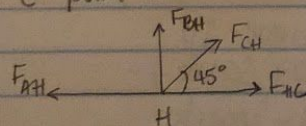 F_BH
F_CH
F_AH 45° F_HG
H